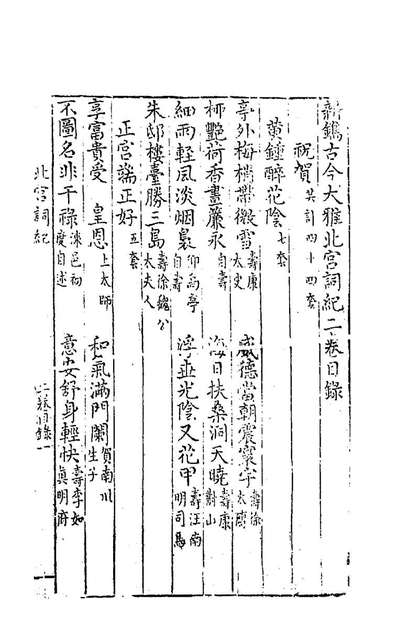 新鐫古今大雅北宮詞紀二卷目錄
祝賀 共計四十四套
黃鍾醉花陰 七套
亭外梅梢帶微雪 壽康太史 威德當朝震寰宇 壽徐太傅
柳艷荷香畫簾永 自壽 海日扶桑洞天曉 壽康對山
細雨輕風淡烟裊 仰禹亭自壽 浮世光陰又花甲 壽汪南明司馬
朱邸樓臺勝三島 壽徐魏公太夫人
正宮端正好 五套
享富貴受 皇恩 上太師 和氣滿門闌 賀南川生子
不圖名非干祿 涞邑初度自述 意安舒身輕快 壽李如真明府
北宮詞紀 二卷目錄 一